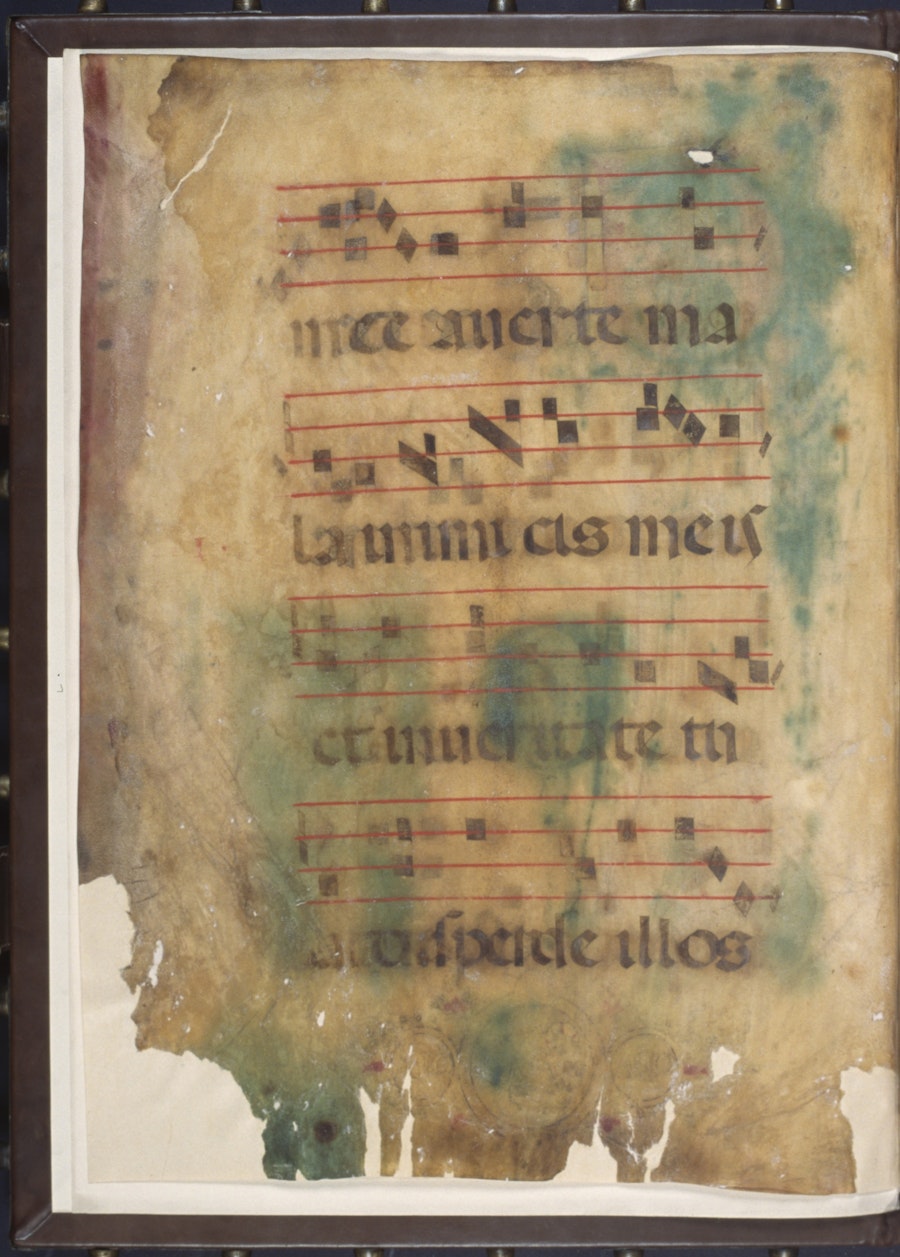 auerte ma
la inimi cis meis
et in ueritate tu
a disperde illos